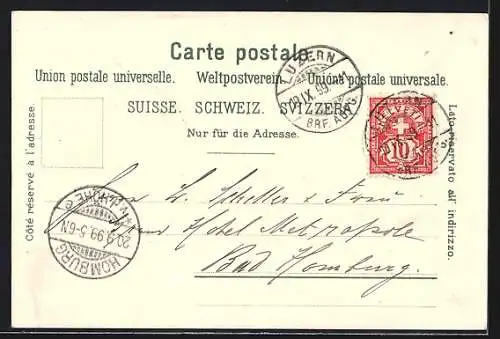 Carte postale.
Union postale universelle. Weltpostverein. Unione postale universale.
SUISSE. SCHWEIZ. SVIZZERA.
Nur für die Adresse.
Côté réservé à l'adresse.
Lato riservato all' indirizzo.
LUZERN
IX.99
BRF. AUFG.
HELVETIA
10
Herrn L. Scheller & Frau
Hotel Metropole
Bad Homburg.
HOMBURG
20.9.99.5-6N